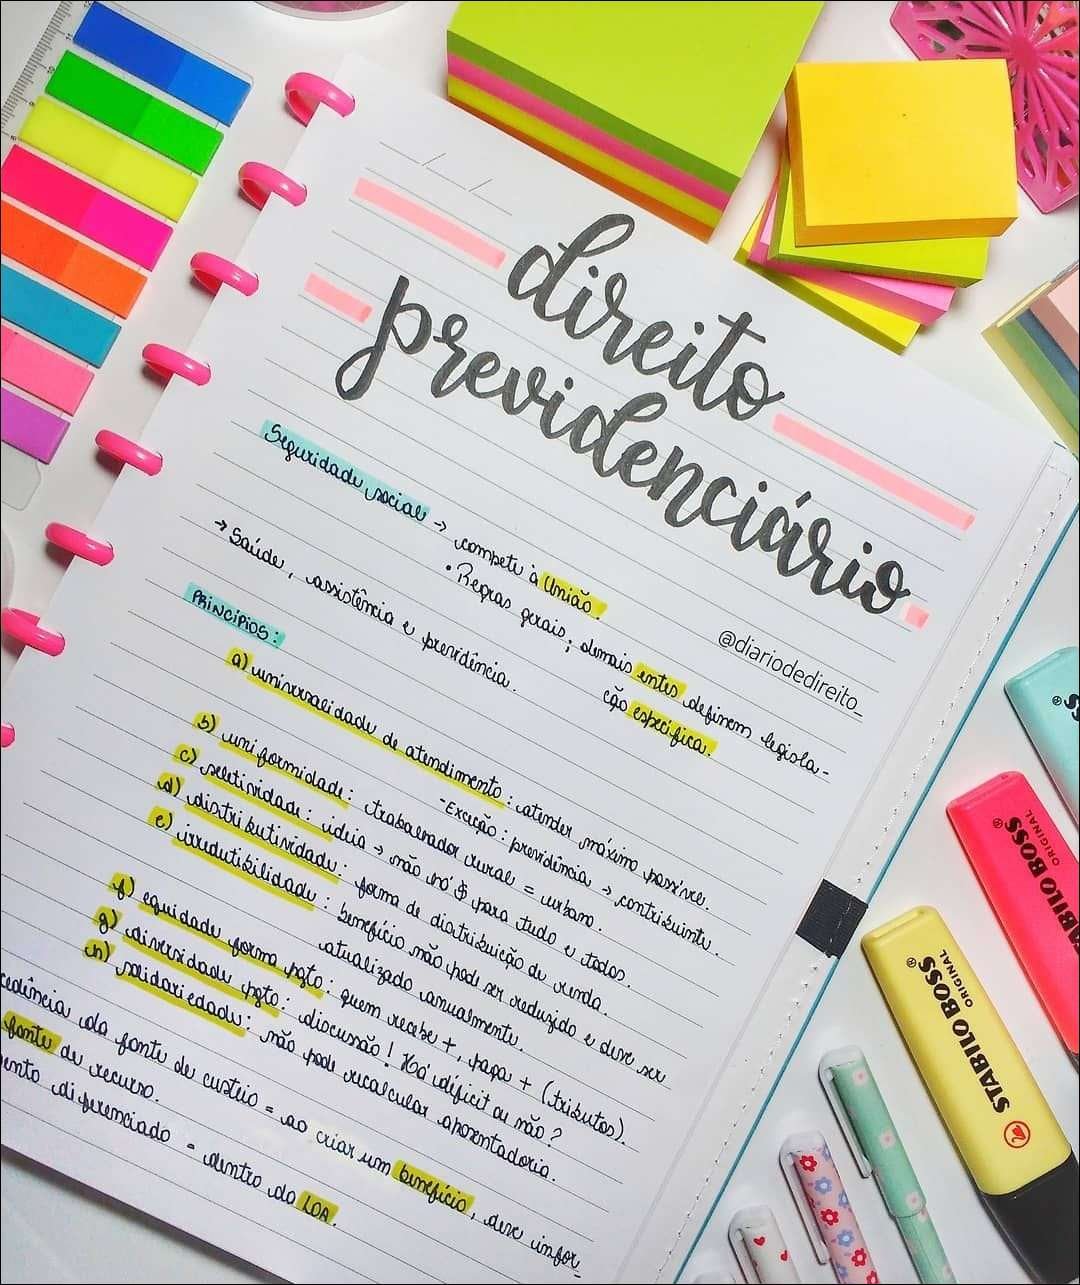 direito
previdenciário
@diariodedireito_
Seguridade social → compete à União.
• Regras gerais; demais entes definem legisla-
ção específica.
→ Saúde, assistência e previdência.
PRINCÍPIOS:
a) universalidade de atendimento: atender máximo possível.
- Exceção: previdência → contribuinte.
b) uniformidade: trabalhador rural = urbano.
c) seletividade: ideia → não há $ para tudo e todos.
d) distributividade: forma de distribuição de renda.
e) irredutibilidade: benefício não pode ser reduzido e deve ser
atualizado anualmente.
f) equidade forma pgto: quem recebe +, paga + (tributos).
g) diversidade pgto: discussão! Há déficit ou não?
h) solidariedade: não pode recalcular aposentadoria.
cedência da fonte de custeio = ao criar um benefício, deve infor_
fonte de recurso.
ento diferenciado = dentro da LOA.
STABILO BOSS
ORIGINAL
STABILO BOSS
ORIGINAL